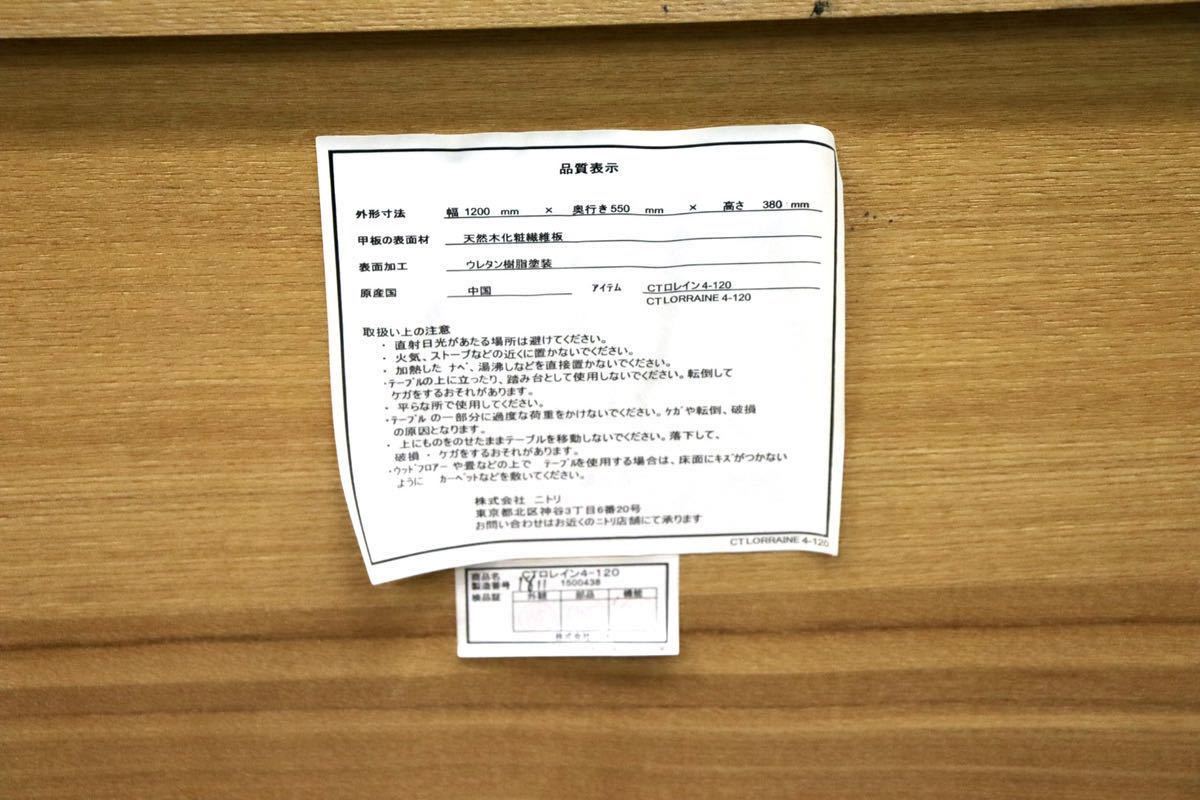 品質表示
外形寸法 幅 1200 mm × 奥行き 550 mm × 高さ 380 mm
甲板の表面材 天然木化粧繊維板
表面加工 ウレタン樹脂塗装
原産国 中国 アイテム CTロレイン4-120
CTLORRAINE 4-120
取扱い上の注意
・ 直射日光があたる場所は避けてください。
・ 火気、ストーブなどの近くに置かないでください。
・ 加熱した ナベ、湯沸しなどを直接置かないでください。
・テーブルの上に立ったり、踏み台として使用しないでください。転倒して
ケガをするおそれがあります。
・ 平らな所で使用してください。
・テーブル の一部分に過度な荷重をかけないでください。ケガや転倒、破損
の原因となります。
・ 上にものをのせたままテーブルを移動しないでください。落下して、
破損・ケガをするおそれがあります。
・ウッドフロアー や畳などの上で テーブルを使用する場合は、床面にキズがつかない
ように カーペットなどを敷いてください。
株式会社 ニトリ
東京都北区神谷3丁目6番20号
お問い合わせはお近くのニトリ店舗にて承ります
CTLORRAINE 4-120
商品名 CTロレイン4-120
製造番号 1811 1500438
検品証 外観 部品 機能
株式会社